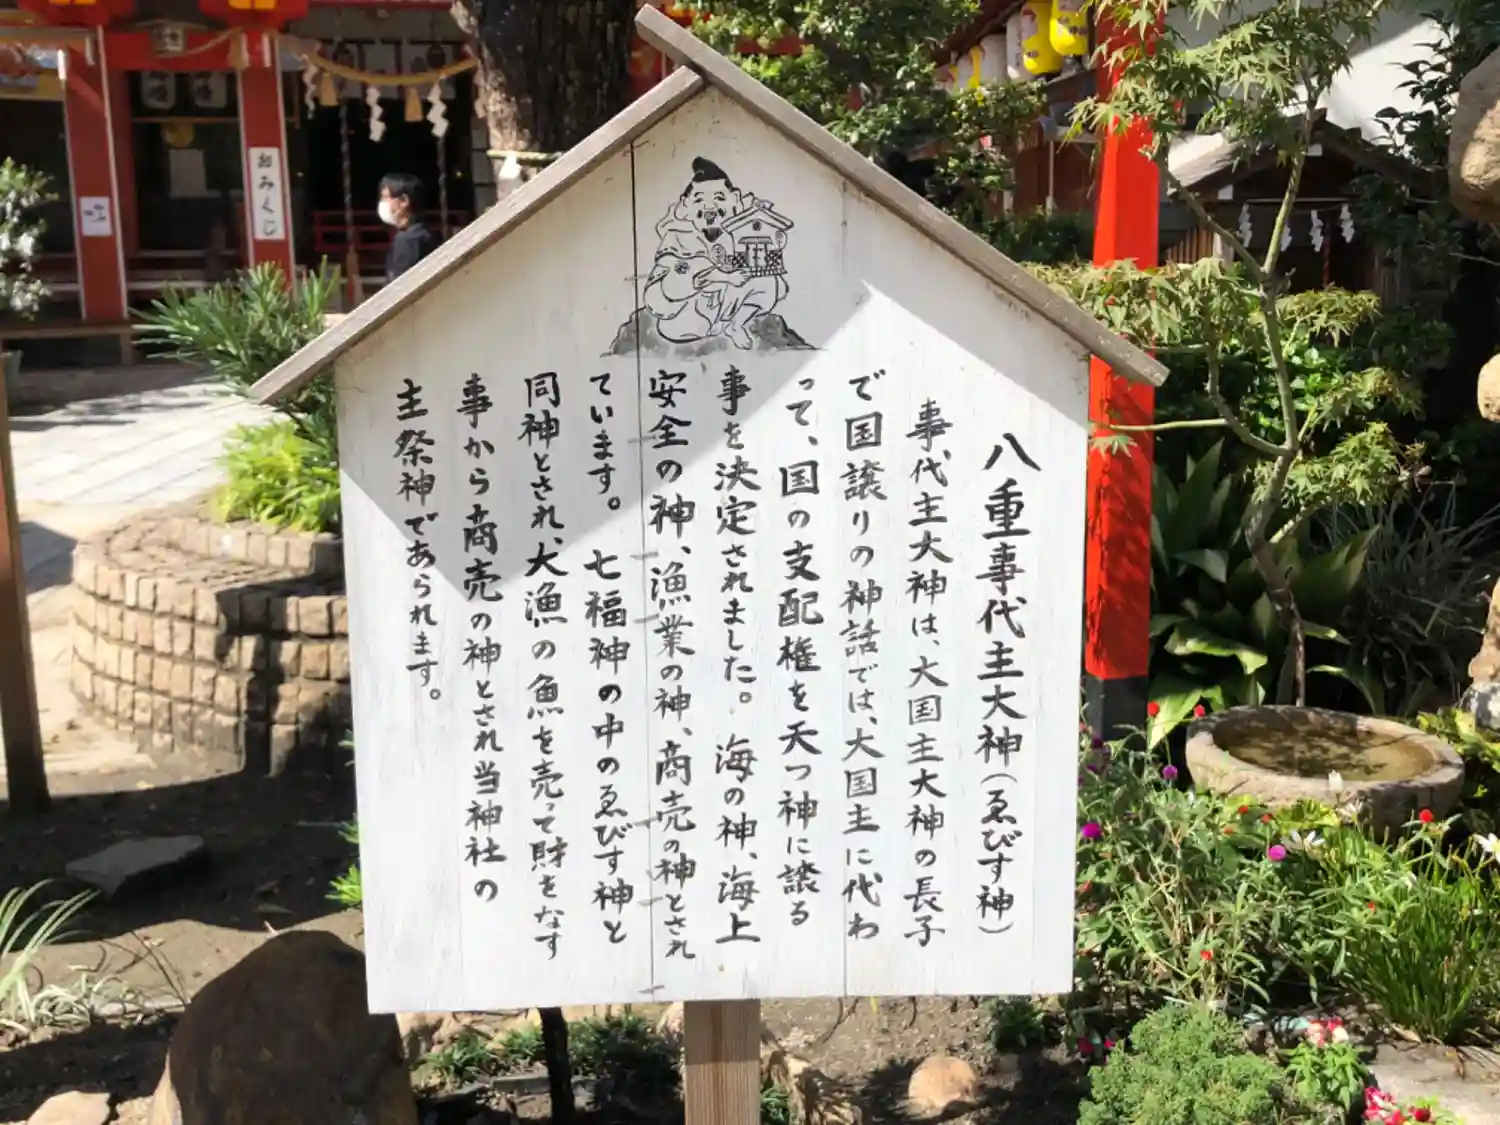 八重事代主大神(ゑびす神)
事代主大神は、大国主大神の長子
で国譲りの神話では、大国主に代わ
って、国の支配権を天つ神に譲る
事を決定されました。海の神、海上
安全の神、漁業の神、商売の神とされ
ています。七福神の中のゑびす神と
同神とされ、大漁の魚を売って財をなす
事から商売の神とされ当神社の
主祭神であられます。
おみくじ